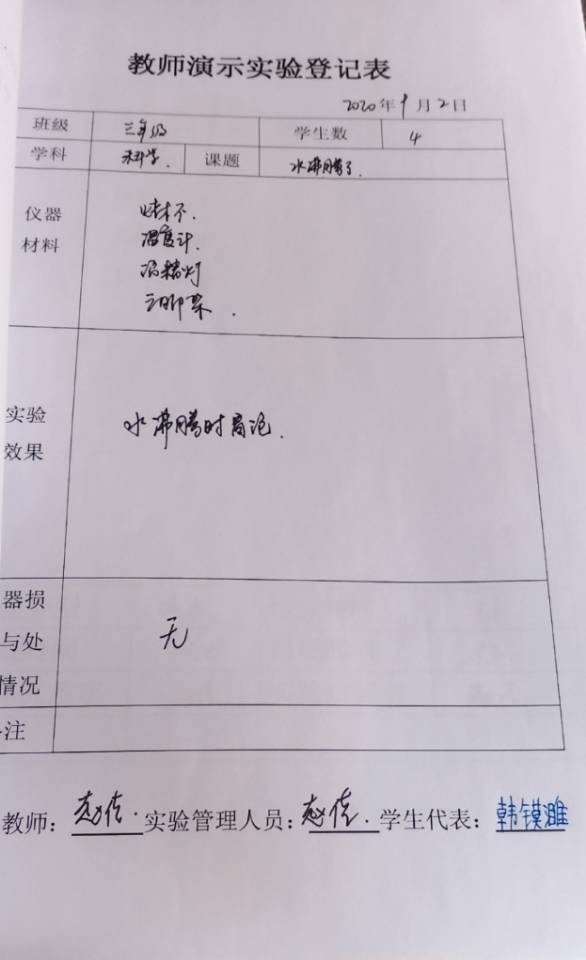 教师演示实验登记表
2020年9月2日
班级 三年级 学生数 4
学科 科学. 课题 水沸腾了.
仪器材料 烧杯.
温度计.
酒精灯
三脚架.
实验效果 水沸腾时冒泡.
器损与处情况 无
注
教师: 实验管理人员: 学生代表: 韩镆雎